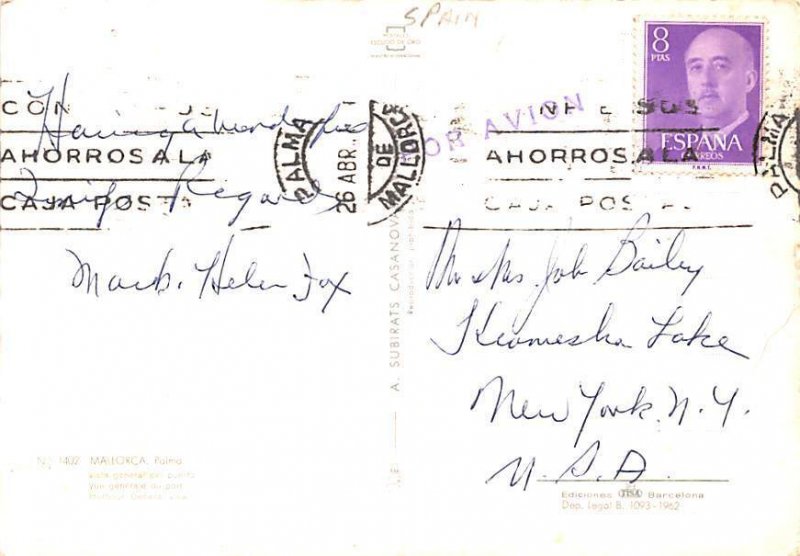 SPAIN
Having a wonderful
Regards
Mark. Helen Fox
PALMA
DE
MALLORCA
26 ABR.
AHORROS A LA
CAJA POSTAL
POR AVION
8
PTAS
ESPAÑA
CORREOS
AHORROS A LA
CAJA POSTAL
PALMA
Mr & Mrs Job Bailey
Kiamesha Lake
New York. N.Y.
U.S.A.
A. SUBIRATS CASANOVA
Nº 1402 MALLORCA. Palma
Vista general del puerto
Vue générale du port
Ediciones Barcelona
Dep. Legal B. 1093-1962